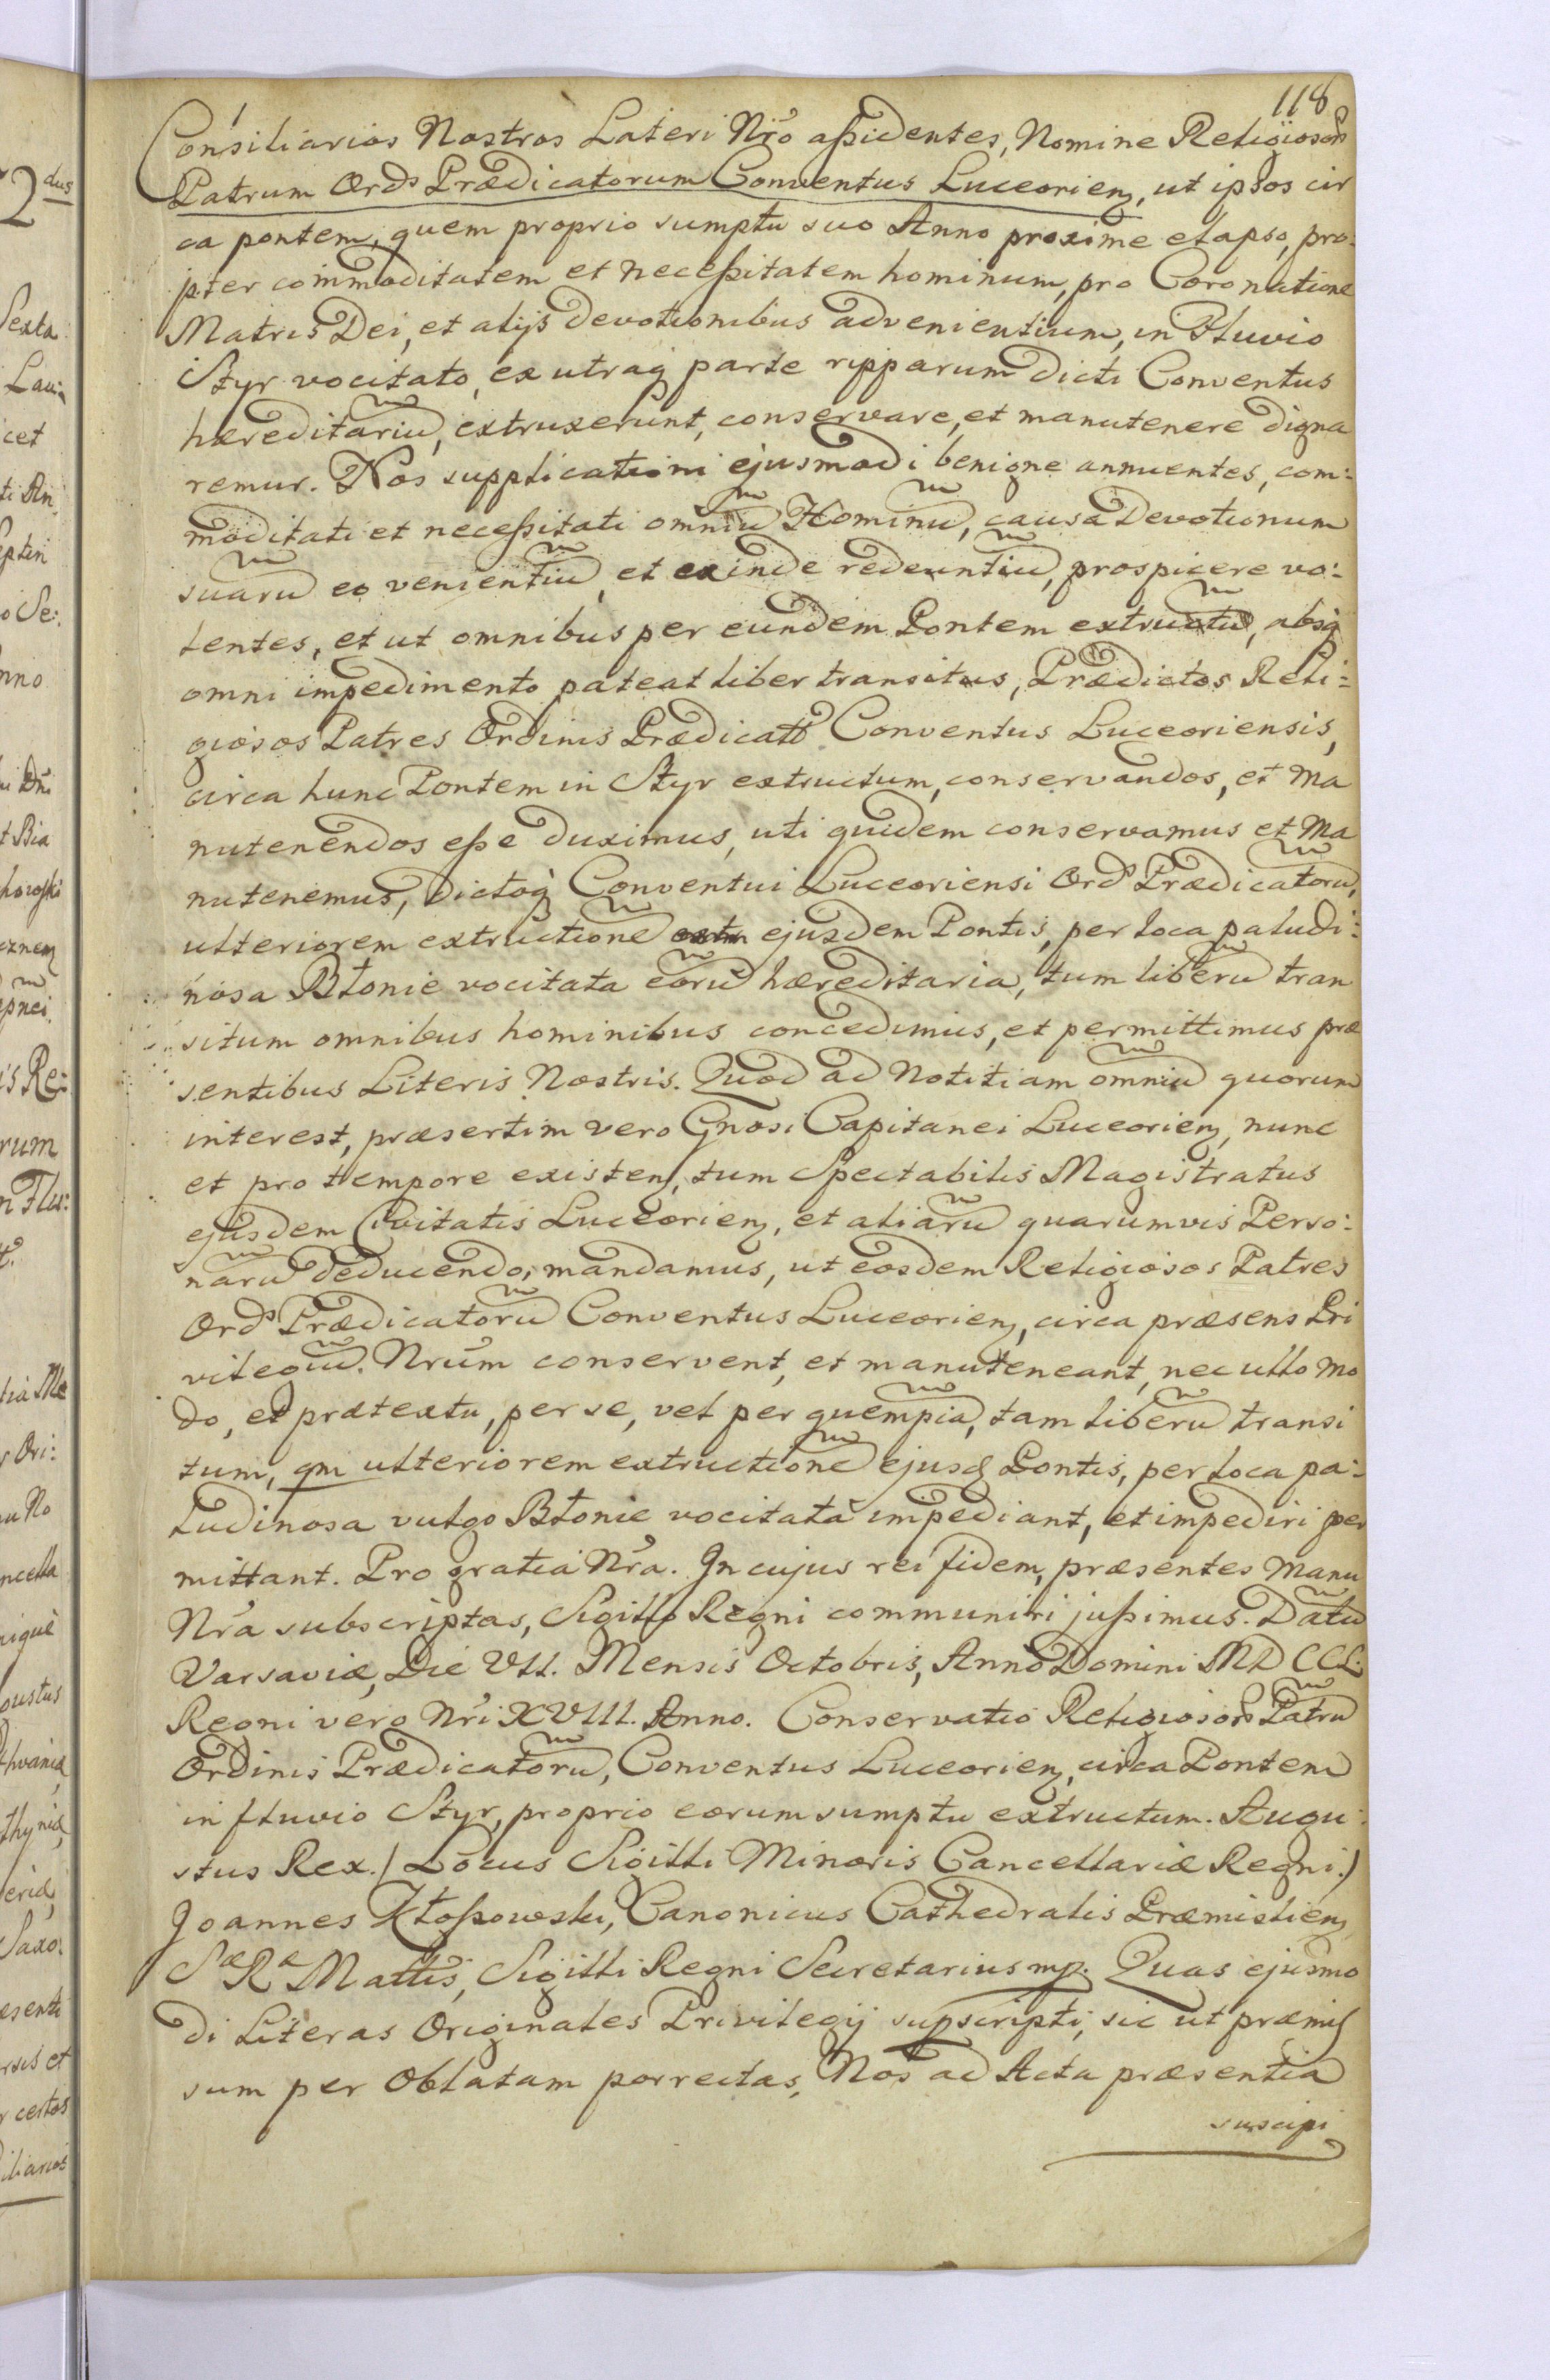 118
Consiliarios Nostros Lateri Nro aßidentes, Nomine Religioson
Patrum Ords Prædicatorum Conventus Luceorien, ut ipsos cir
ca pontem, quem proprio sumptu suo Anno proxime elapso, pro:
pter commoditatem et neceßitatem hominum, pro Coronatione
Matris Dei, et alijs devotionibus advenientium, in Fluvio
Styr vocitato, ex utraq parte ripparum dicti Conventus
hæreditariu, extruxerunt, conservare, et manutenere digna
remur. Nos supplicationi ejusmodi benigne annuentes, com:
moditati et neceßitati omniu Hominu, causa Devotionum
suaru eo venientiu, et exinde redeuntiu, prospicere vo:
lentes, et ut omnibus per eundem Pontem extructu, absq
omni impedimento pateat liber transitus, Prædictos Reli:
giosos Patres Ordinis Prædicatt Conventus Luceoriensis,
circa hunc Pontem in Styr extructum, conservandos, et Ma
nutenendos eße duximus, uti quidem conservamus et Ma
nutenemus, Dictoq Conventui Luceoriensi Ords Prædicatoru,
ulteriorem extructione ejusdem Pontis, per loca paludi:
nosa Błonie vocitata eoru hæreditaria, tum liberu tran
situm omnibus hominibus concedimus, et permittimus præ
sentibus Literis Nostris. Quod ad Notitiam omniu quorum
interest, præsertim vero Gnosi Capitanei Luceorien, nunc
et pro tempore existen, tum Spectabilis Magistratus
ejusdem Civitatis Luceorien, et aliaru quarumvis Perso:
naru deducendo, mandamus, ut eosdem Religiosos Patres
Ords Prædicatoru Conventus Luceorien, circa præsens Pri
vilegiu Nrum conservent, et manuteneant, nec ullo mo
do, et prætextu, per se, vel per quempia, tam liberu transi
tum, qm ulteriorem extructione ejusd Pontis, per loca pa:
ludinosa vulgo Błonie vocitata impediant, et impediri per
mittant. Pro gratia Nra. In cujus rei fidem, præsentes Manu
Nra subscriptas, Sigillo Regni communiri jußimus. Datu
Varsaviæ, Die VII. Mensis Octobris, Anno Domini MDCCL.
Regni vero Nri XVIII. Anno. Conservatio Religioson Patru
Ordinis Prædicatoru, Conventus Luceorien, circa Pontem
in fluvio Styr, proprio eorum sumptu extructum. Augu:
stus Rex. / Locus Sigilli Minoris Cancellariæ Regni. /
Joannes Kłoßowski, Canonicus Cathedralis Præmislien,
Sæ Ræ Mattis, Sigilli Regni Secretarius mp. Quas ejusmo
di Literas Originales Privilegij supscripti, sic ut præmis
sum per Oblatam porrectas, Nos ad Acta præsentia
suscipi
2dus
Sexta
Lau:
cet
ti An:
nno
t Bia
is Re:
rum
n Flu:
r Ori:
ncella
ustus
thvaniæ
Saxo:
esenti
rsis et
r certos
iliarios